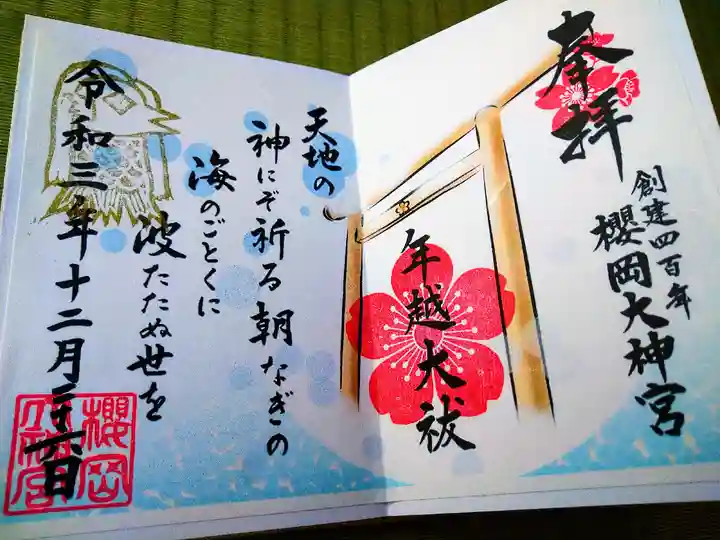 奉拝
創建四百年
櫻岡大神宮
年越大祓
天地の
神にぞ祈る朝なぎの
海のごとくに
波たたぬ世を
令和三年十二月三十一日
櫻岡
大神宮